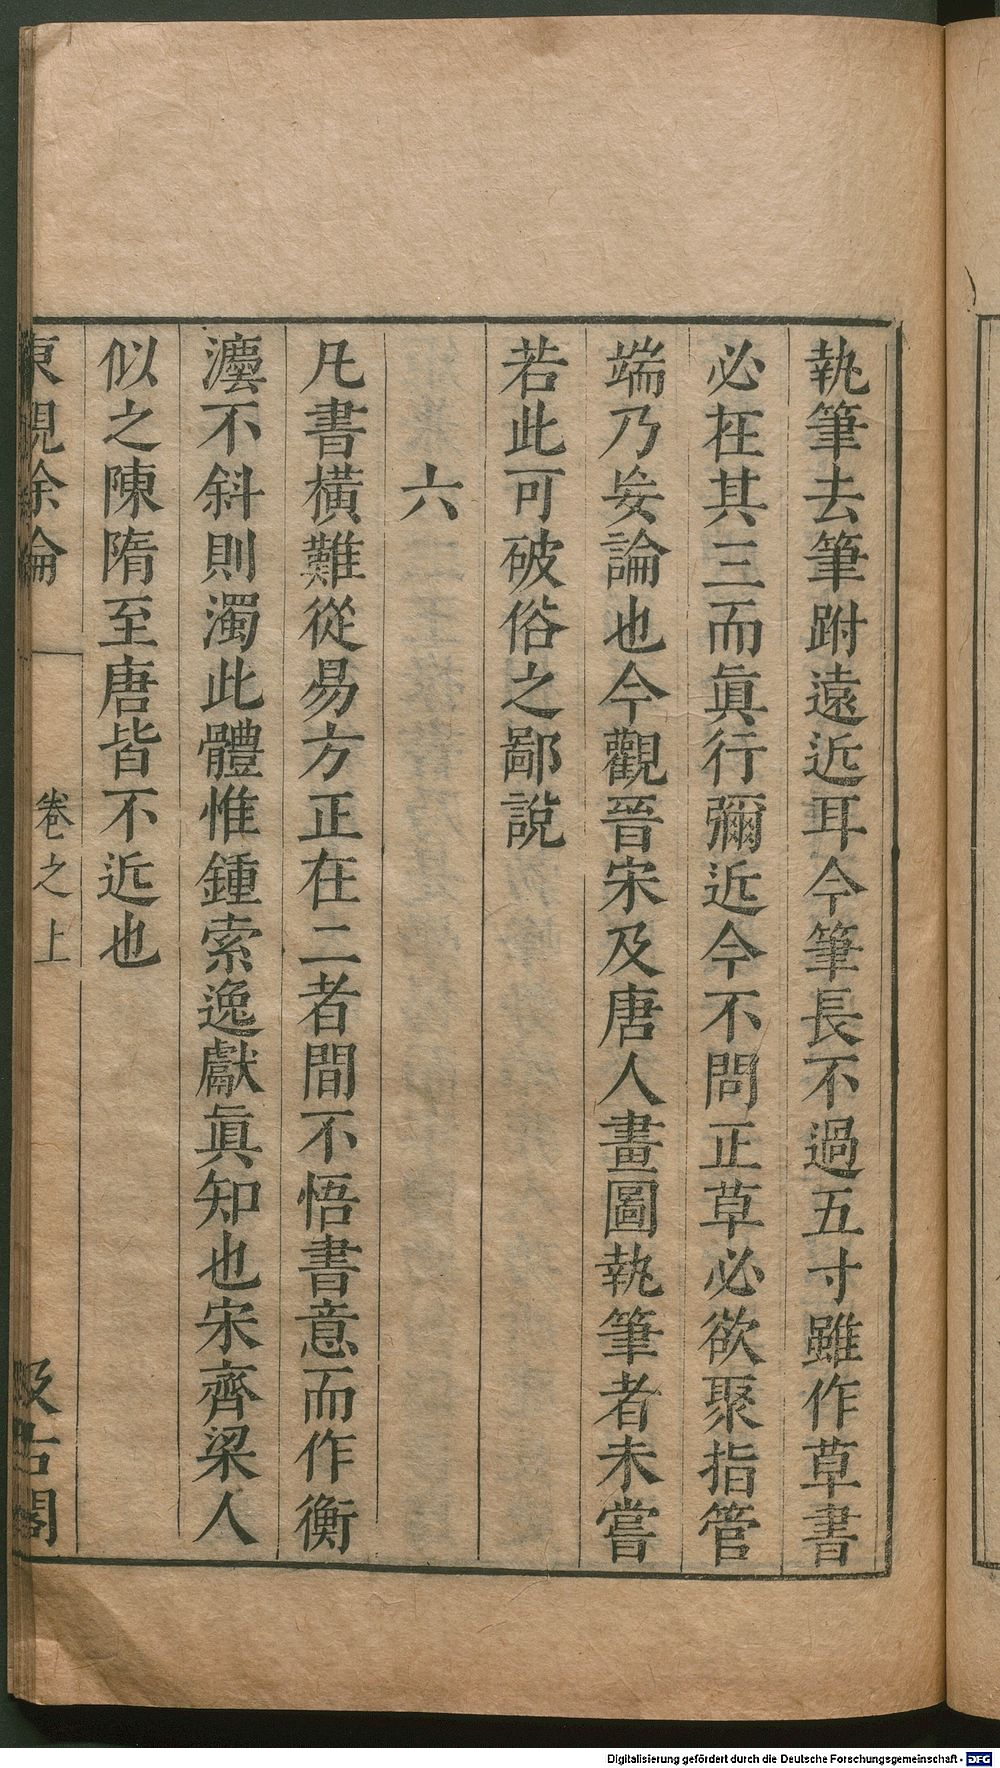 執筆去筆跗遠近耳今筆長不過五寸雖作草書
必在其三而眞行彌近今不問正草必欲聚指管
端乃妄論也今觀晉宋及唐人畫圖執筆者未嘗
若此可破俗之鄙說
六
凡書橫難從易方正在二者間不悟書意而作衡
不斜則濁此體惟鍾索逸獻眞知也宋齊梁人
似之陳隋至唐皆不近也
東觀餘論
卷之上
汲古閣
Digitalisierung gefördert durch die Deutsche Forschungsgemeinschaft - DFG